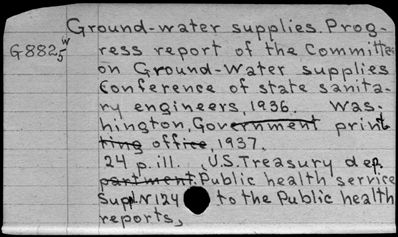 Ground-water supplies. Prog-
G8825w ress report of the Committee
on Ground-Water supplies
Conference of state sanita-
ry engineers, 1936. Was-
hington, Government print
ting office, 1937.
24 p. ill. (U.S. Treasury dep.
partment. Public health service
Suppl. N 124 to the Public health
reports,